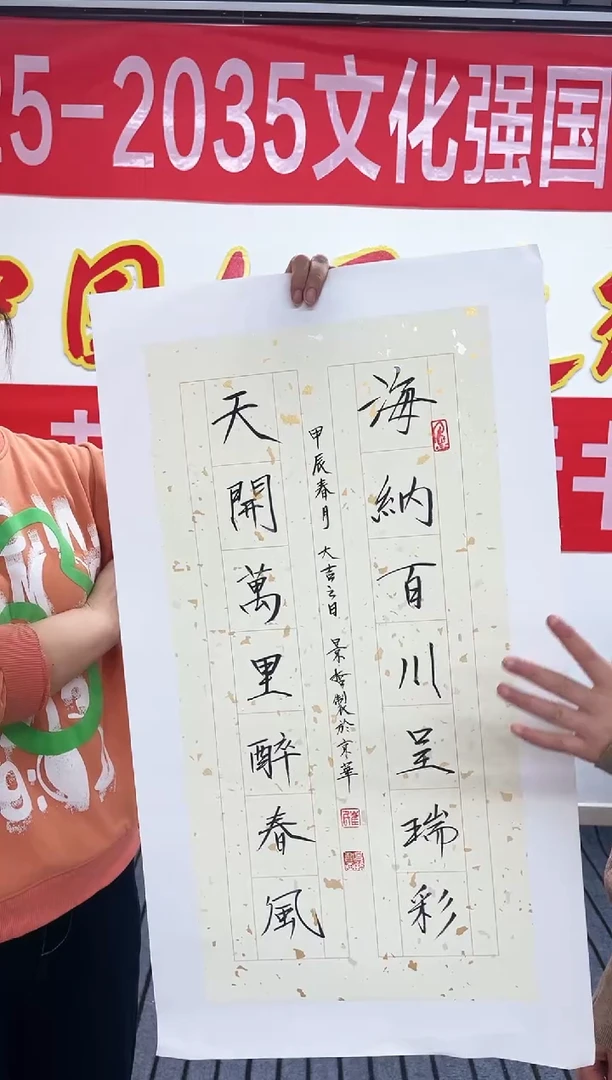 25-2035文化强国
海納百川呈瑞彩
天開萬里醉春風
甲辰春月 大吉之日 景如製於京華